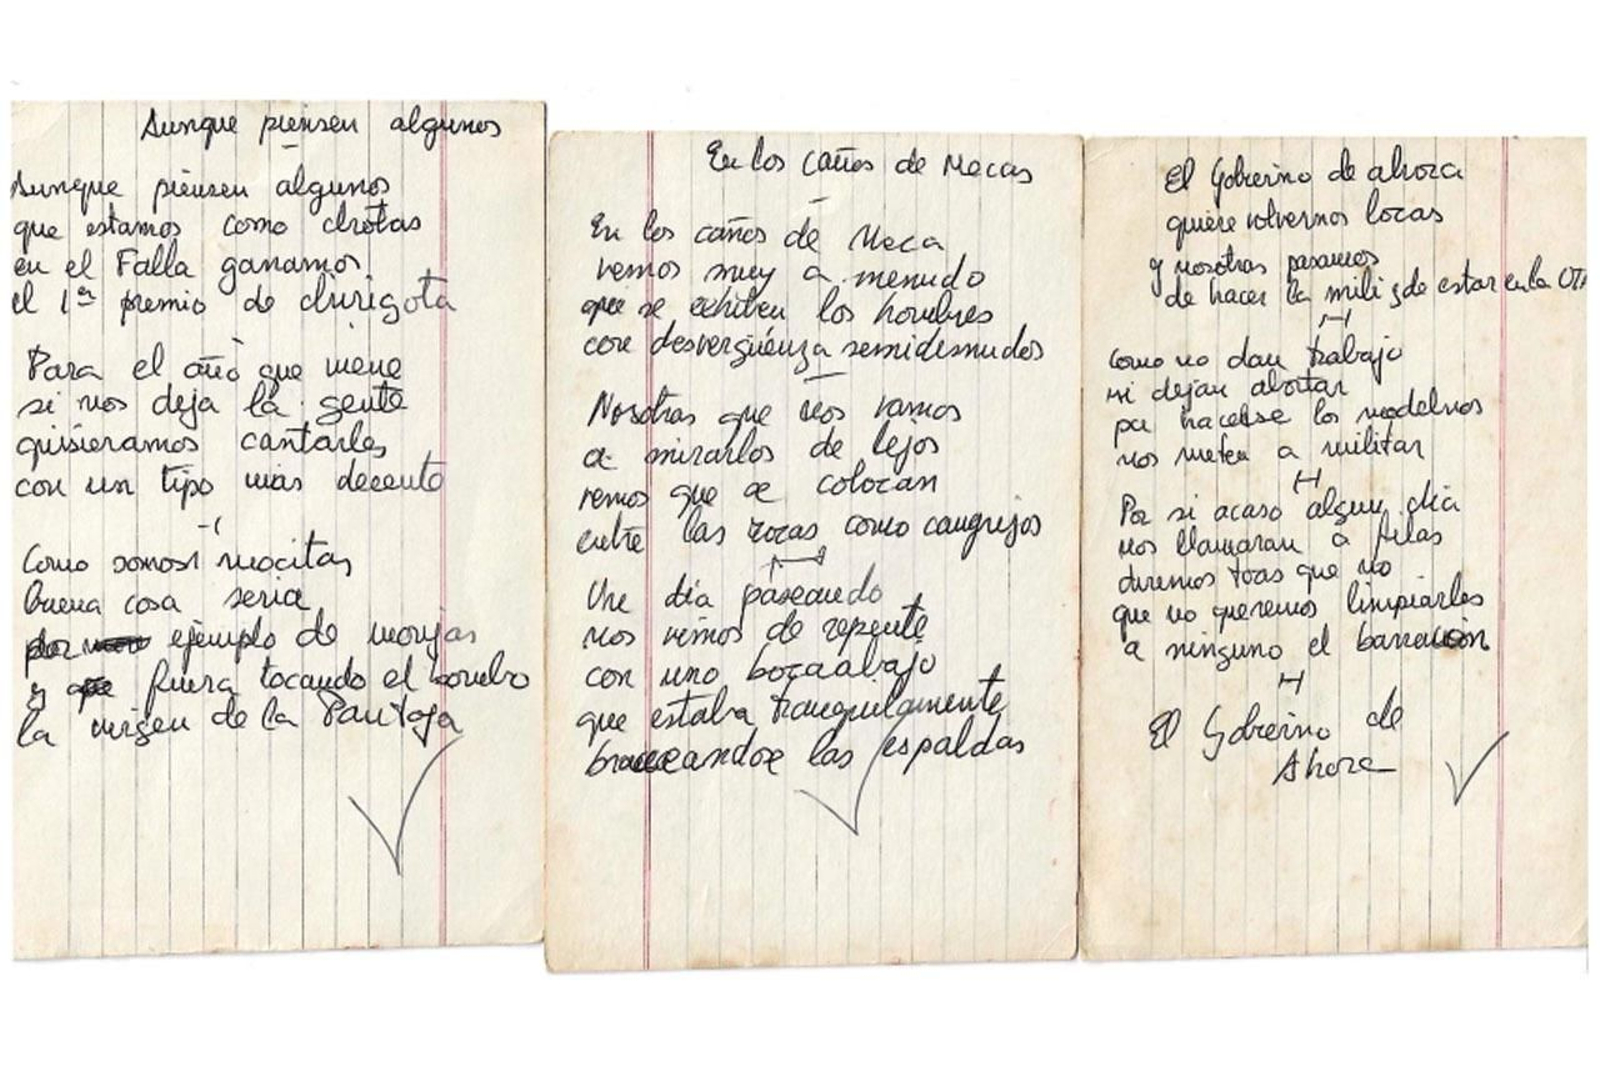 Aunque piensen algunos
Aunque piensen algunos
que estamos como chotas
en el Falla ganamos
el 1er premio de chirigota
Para el año que viene
si nos deja la gente
quisieramos cantarles
con un tipo mas decente
Como somos mocitas
buena cosa seria
por ejemplo de monjas
y fuera tocando el bombo
la virgen de la Pantoja
En los caños de Mecas
En los caños de Meca
vemos muy a menudo
que se exhiben los hombres
con desvergüenza semidesnudos
Nosotras que nos vamos
a mirarlos de lejos
vemos que se colocan
entre las rocas como cangrejos
Un dia paseando
nos vimos de repente
con uno bocaabajo
que estaba tranquilamente
las espaldas
El Gobierno de ahora
quiere volvernos locas
y nosotras pasamos
de hacer la mili y de estar en la OTA
Como no dan trabajo
ni dejan abortar
pa hacerse los modelnos
nos meten a militar
Por si acaso algun dia
nos llamaran a filas
diremos toas que no
que no queremos limpiarles
a ninguno el
El Gobierno de
Ahora